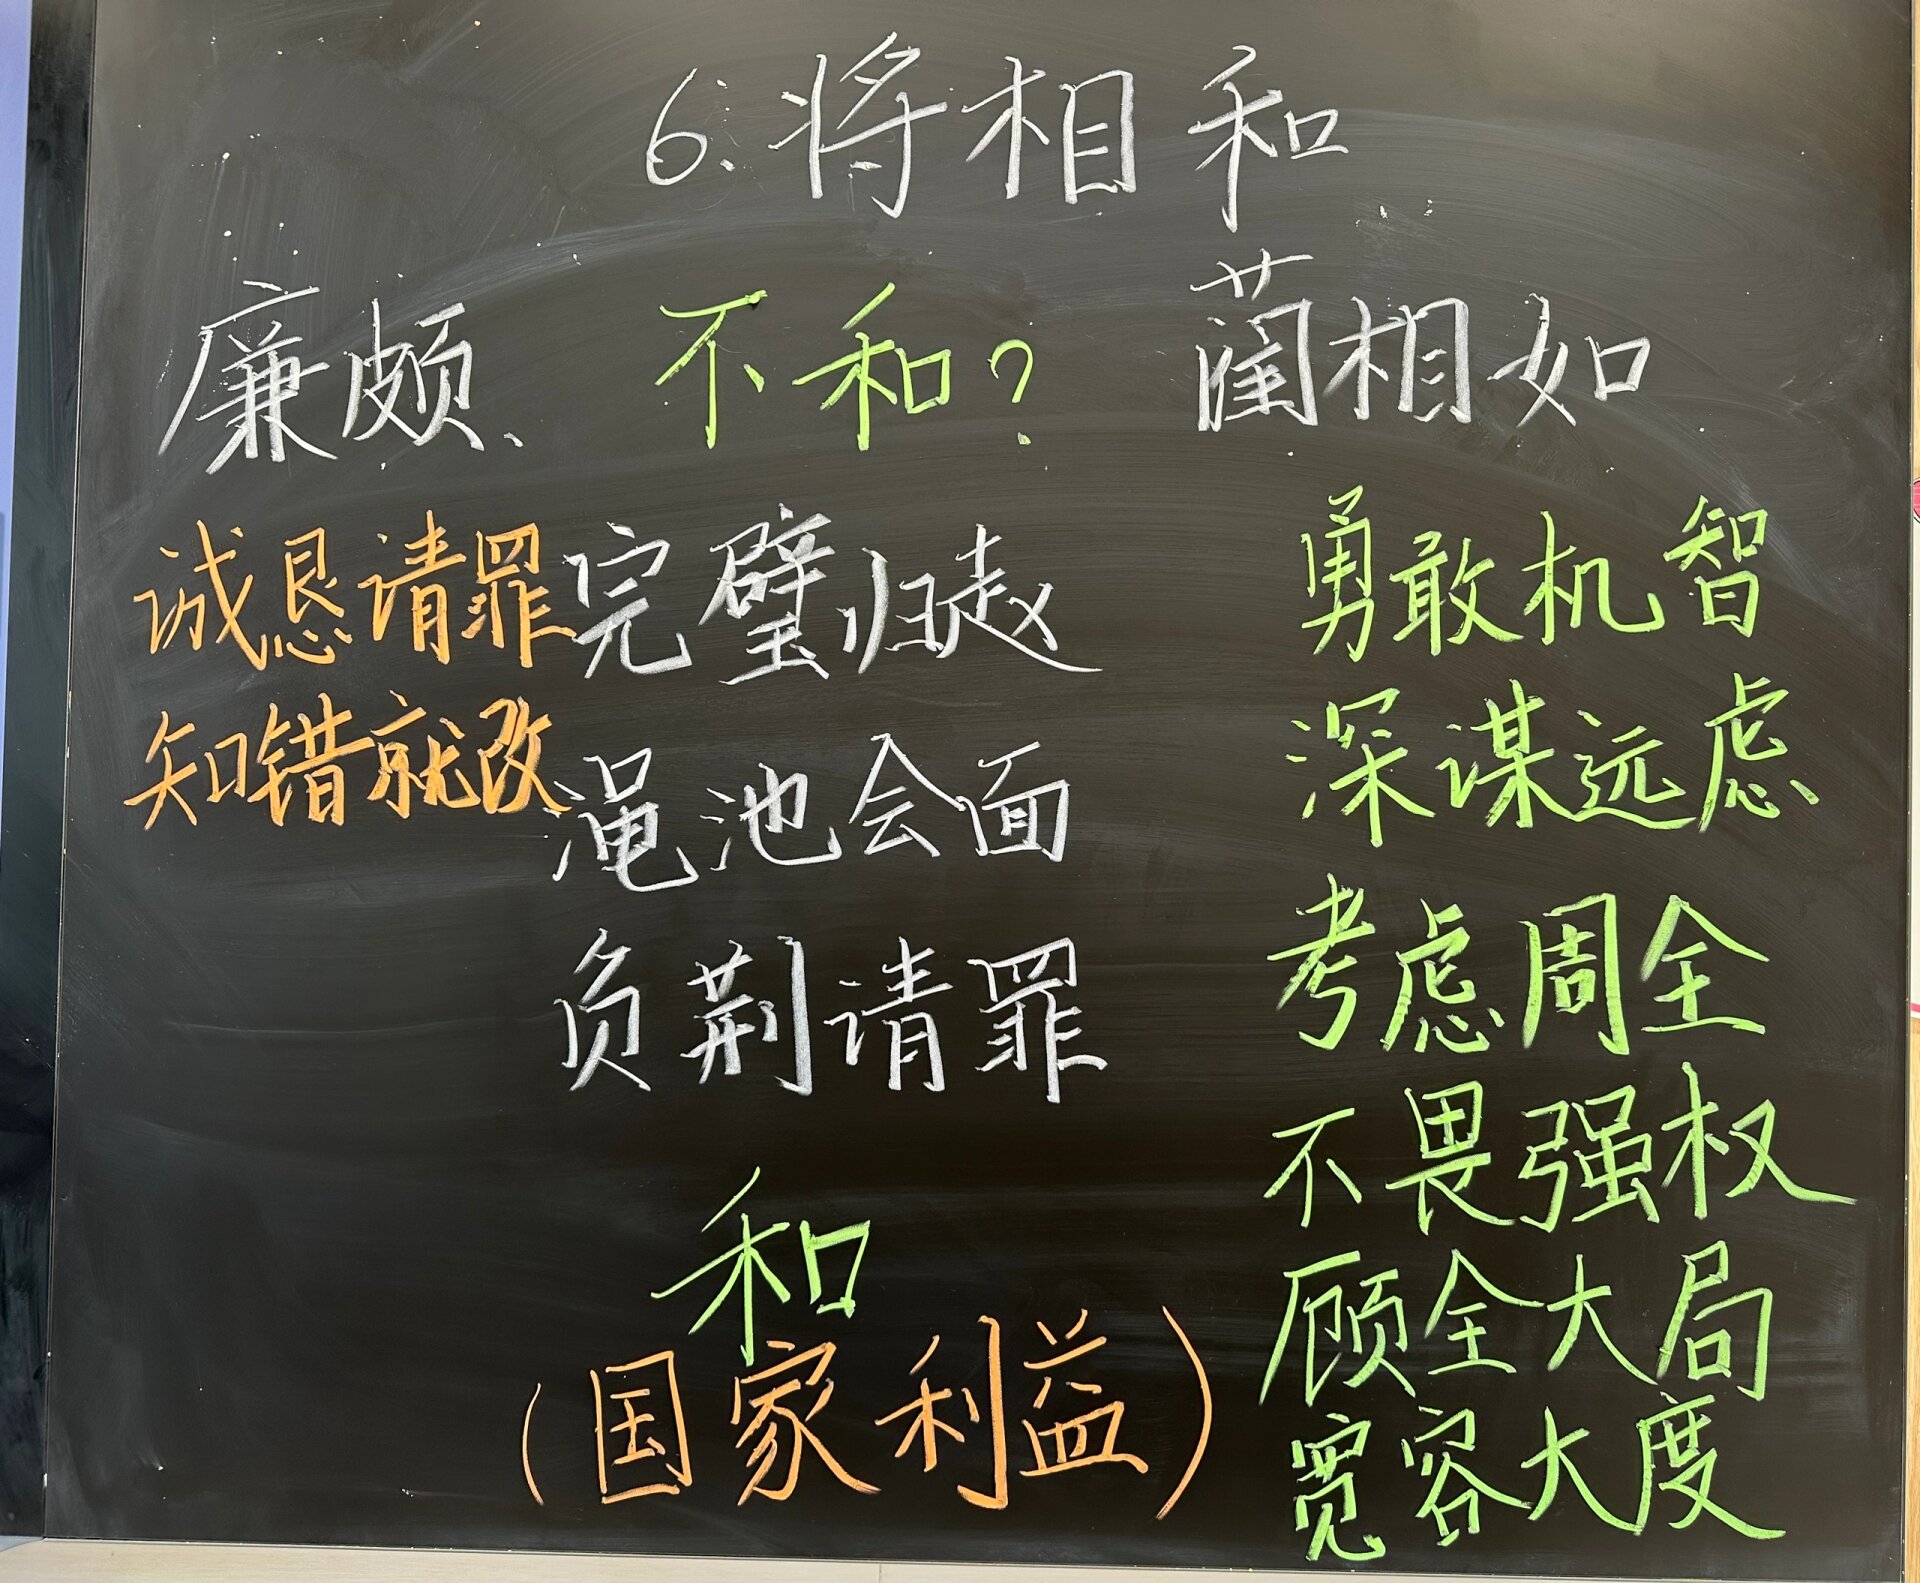 6.将相和
廉颇、 不和? 蔺相如
诚恳请罪 完璧归赵 勇敢机智
知错就改 渑池会面 深谋远虑
负荆请罪 考虑周全
不畏强权
和 顾全大局
(国家利益) 宽容大度